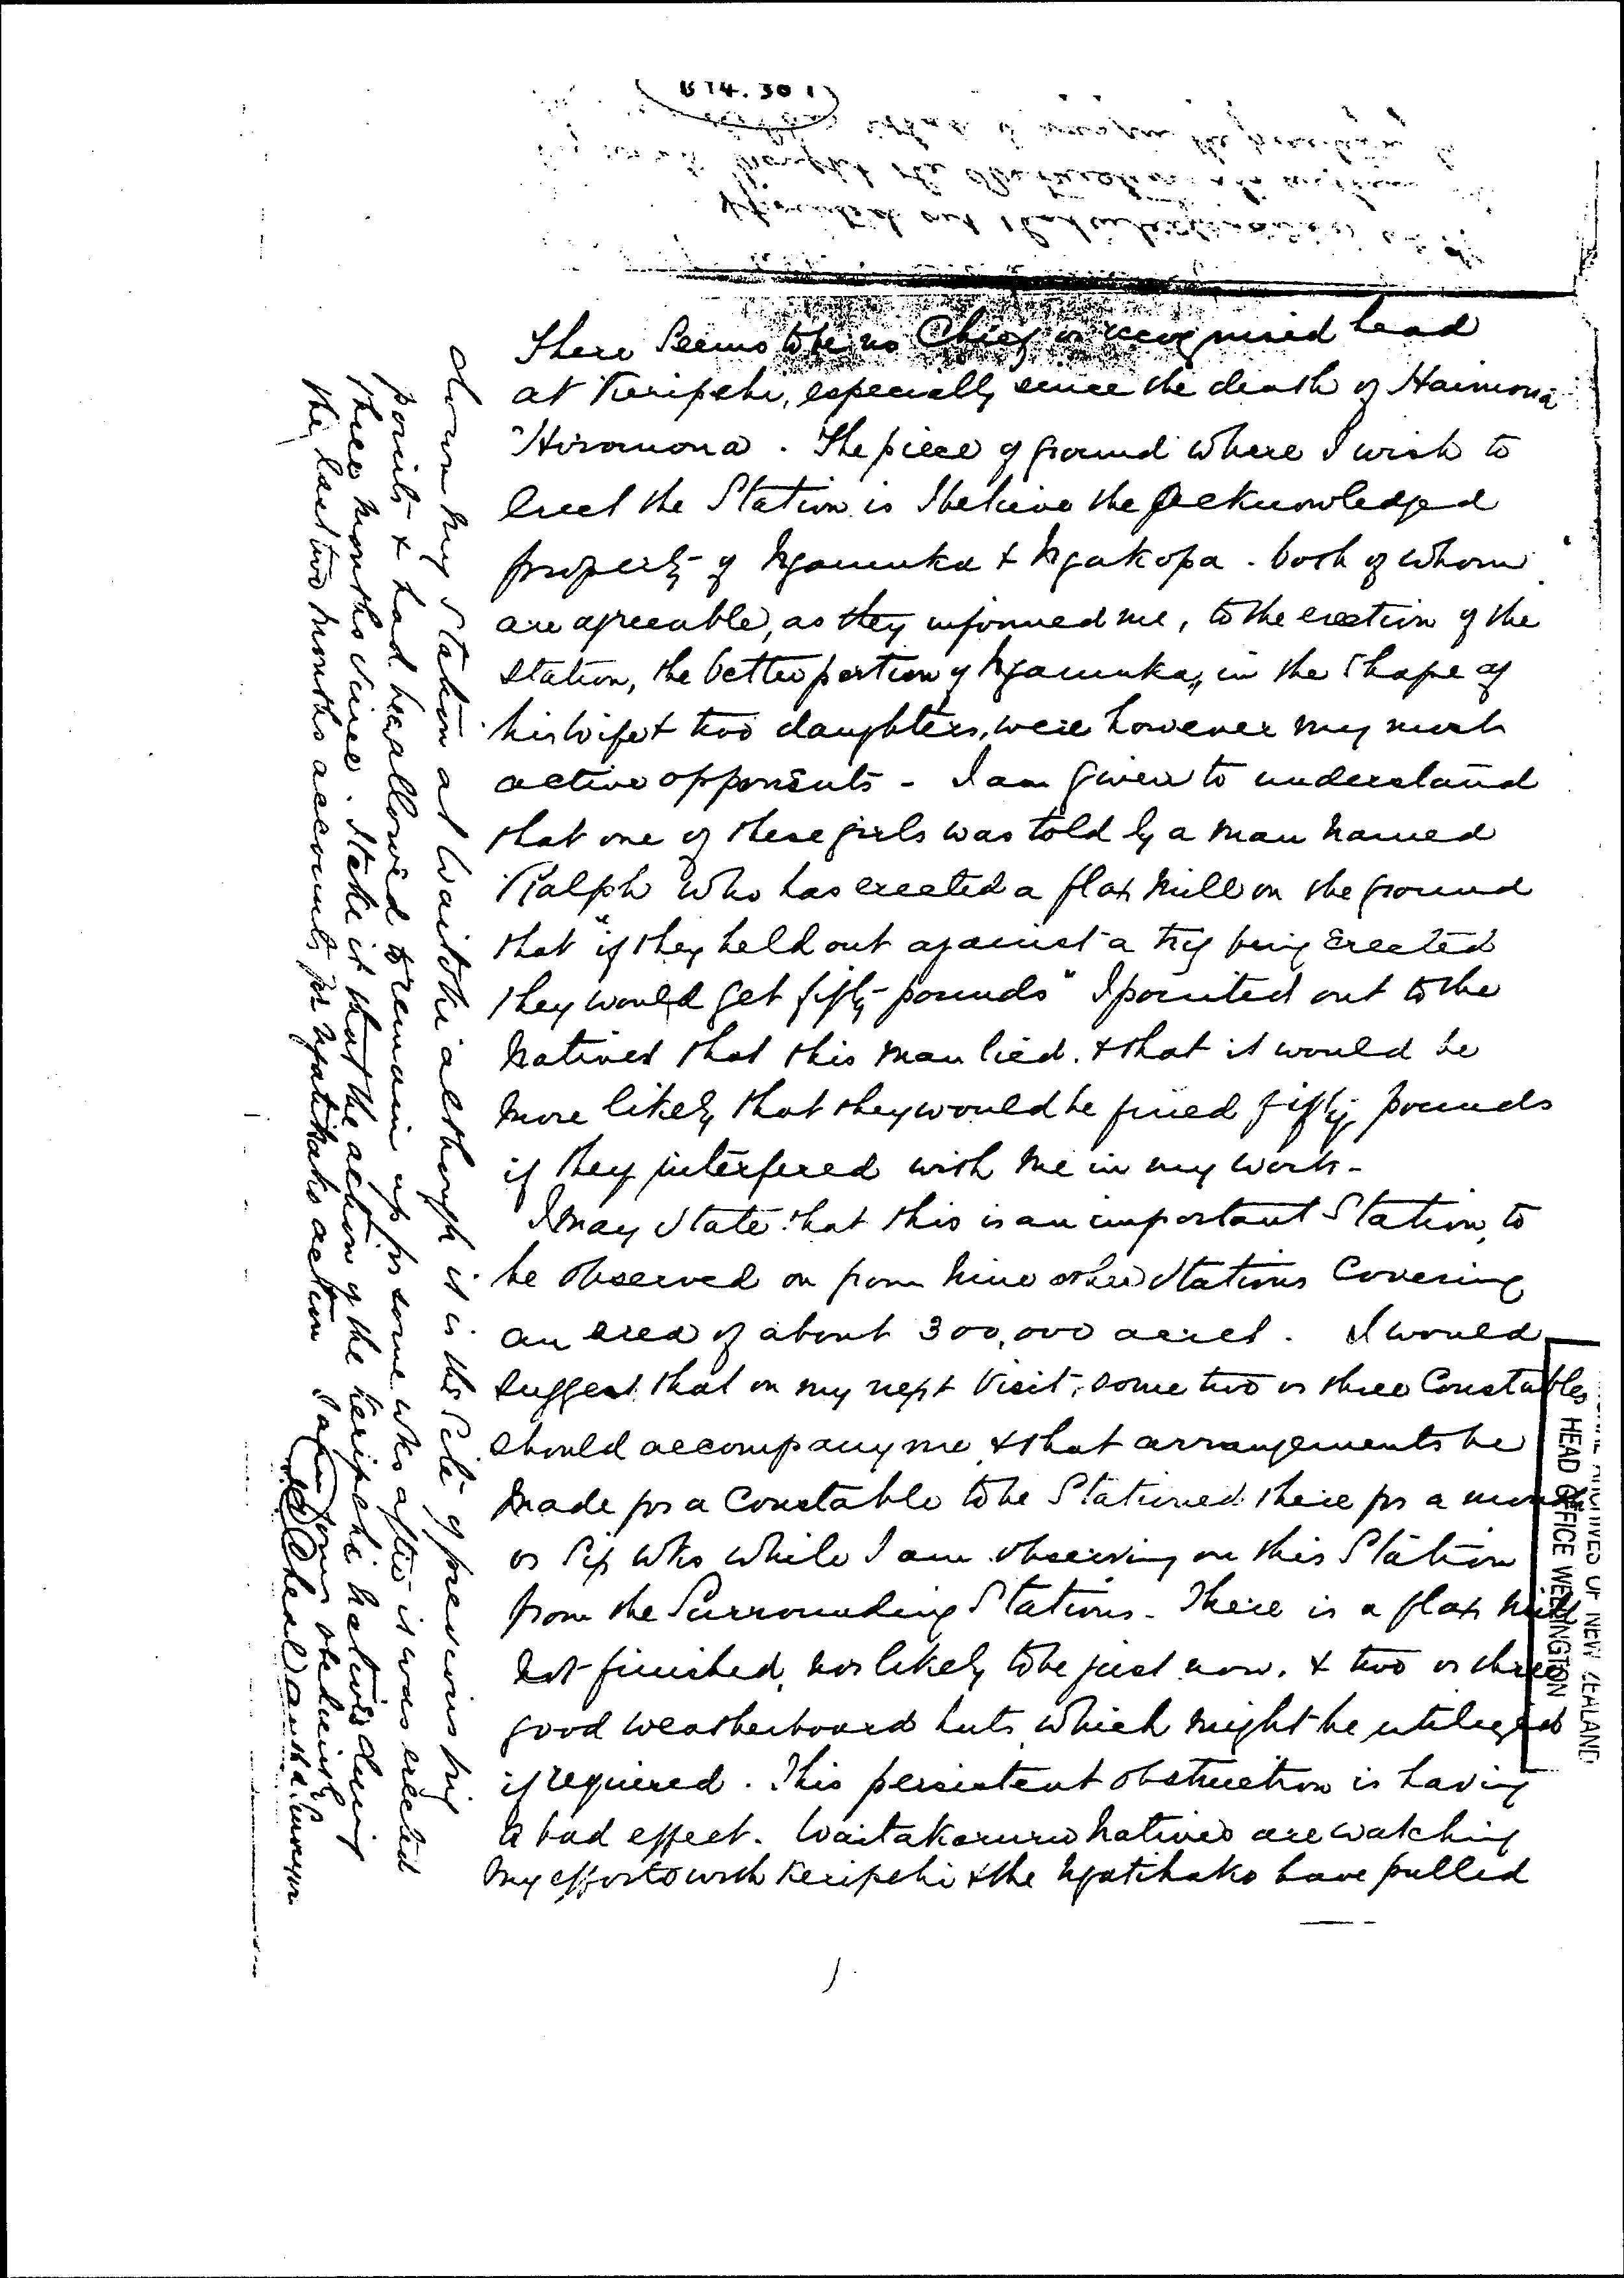 There Seems to be no Chief or recognised head
at Keripehi, especially since the death of Haimona
Hiromona. The piece of ground where I wish to
erect the Station is I believe the Acknowledged
property of Ngamuka & Ngakopa. both of whom
are agreeable, as they informed me, to the erection of the
Station, the better portion of Ngamuka, in the shape of
his wife & two daughters, were however my most
active opponents - I am given to understand
that one of these girls was told by a man named
Ralph who has erected a flax mill on the ground
that "if they held out against a trig being erected
they would get fifty pounds" I pointed out to the
Natives that this man lied. & that it would be
more likely that they would be fined fifty pounds
if they interfered with me in my work -
I may state that this is an important Station, to
be observed on from nine other Stations Covering
an area of about 300,000 acres. I would
suggest that on my next visit, some two or three Constables
should accompany me, & that arrangements be
made for a Constable to be Stationed there for a month
or six wks while I am observing on this Station
from the Surrounding Stations. There is a flax mill
not finished, nor likely to be just now, & two or three
good weatherboard huts, which might be utilized
if required. This persistent obstruction is having
a bad effect. Waitakaruru Natives are watching
my efforts with Keripehi & the Ngatihako have pulled
down my Station at Waitoki although it is the Site of previous trig
points & had been allowed to remain up for some wks after it was erected
three months since. I take it that the action of the Keripehi natives during
the last two months accounts for Ngatihakos action
I am Yours obediently
HEAD OFFICE WELLINGTON
ARCHIVES OF NEW ZEALAND